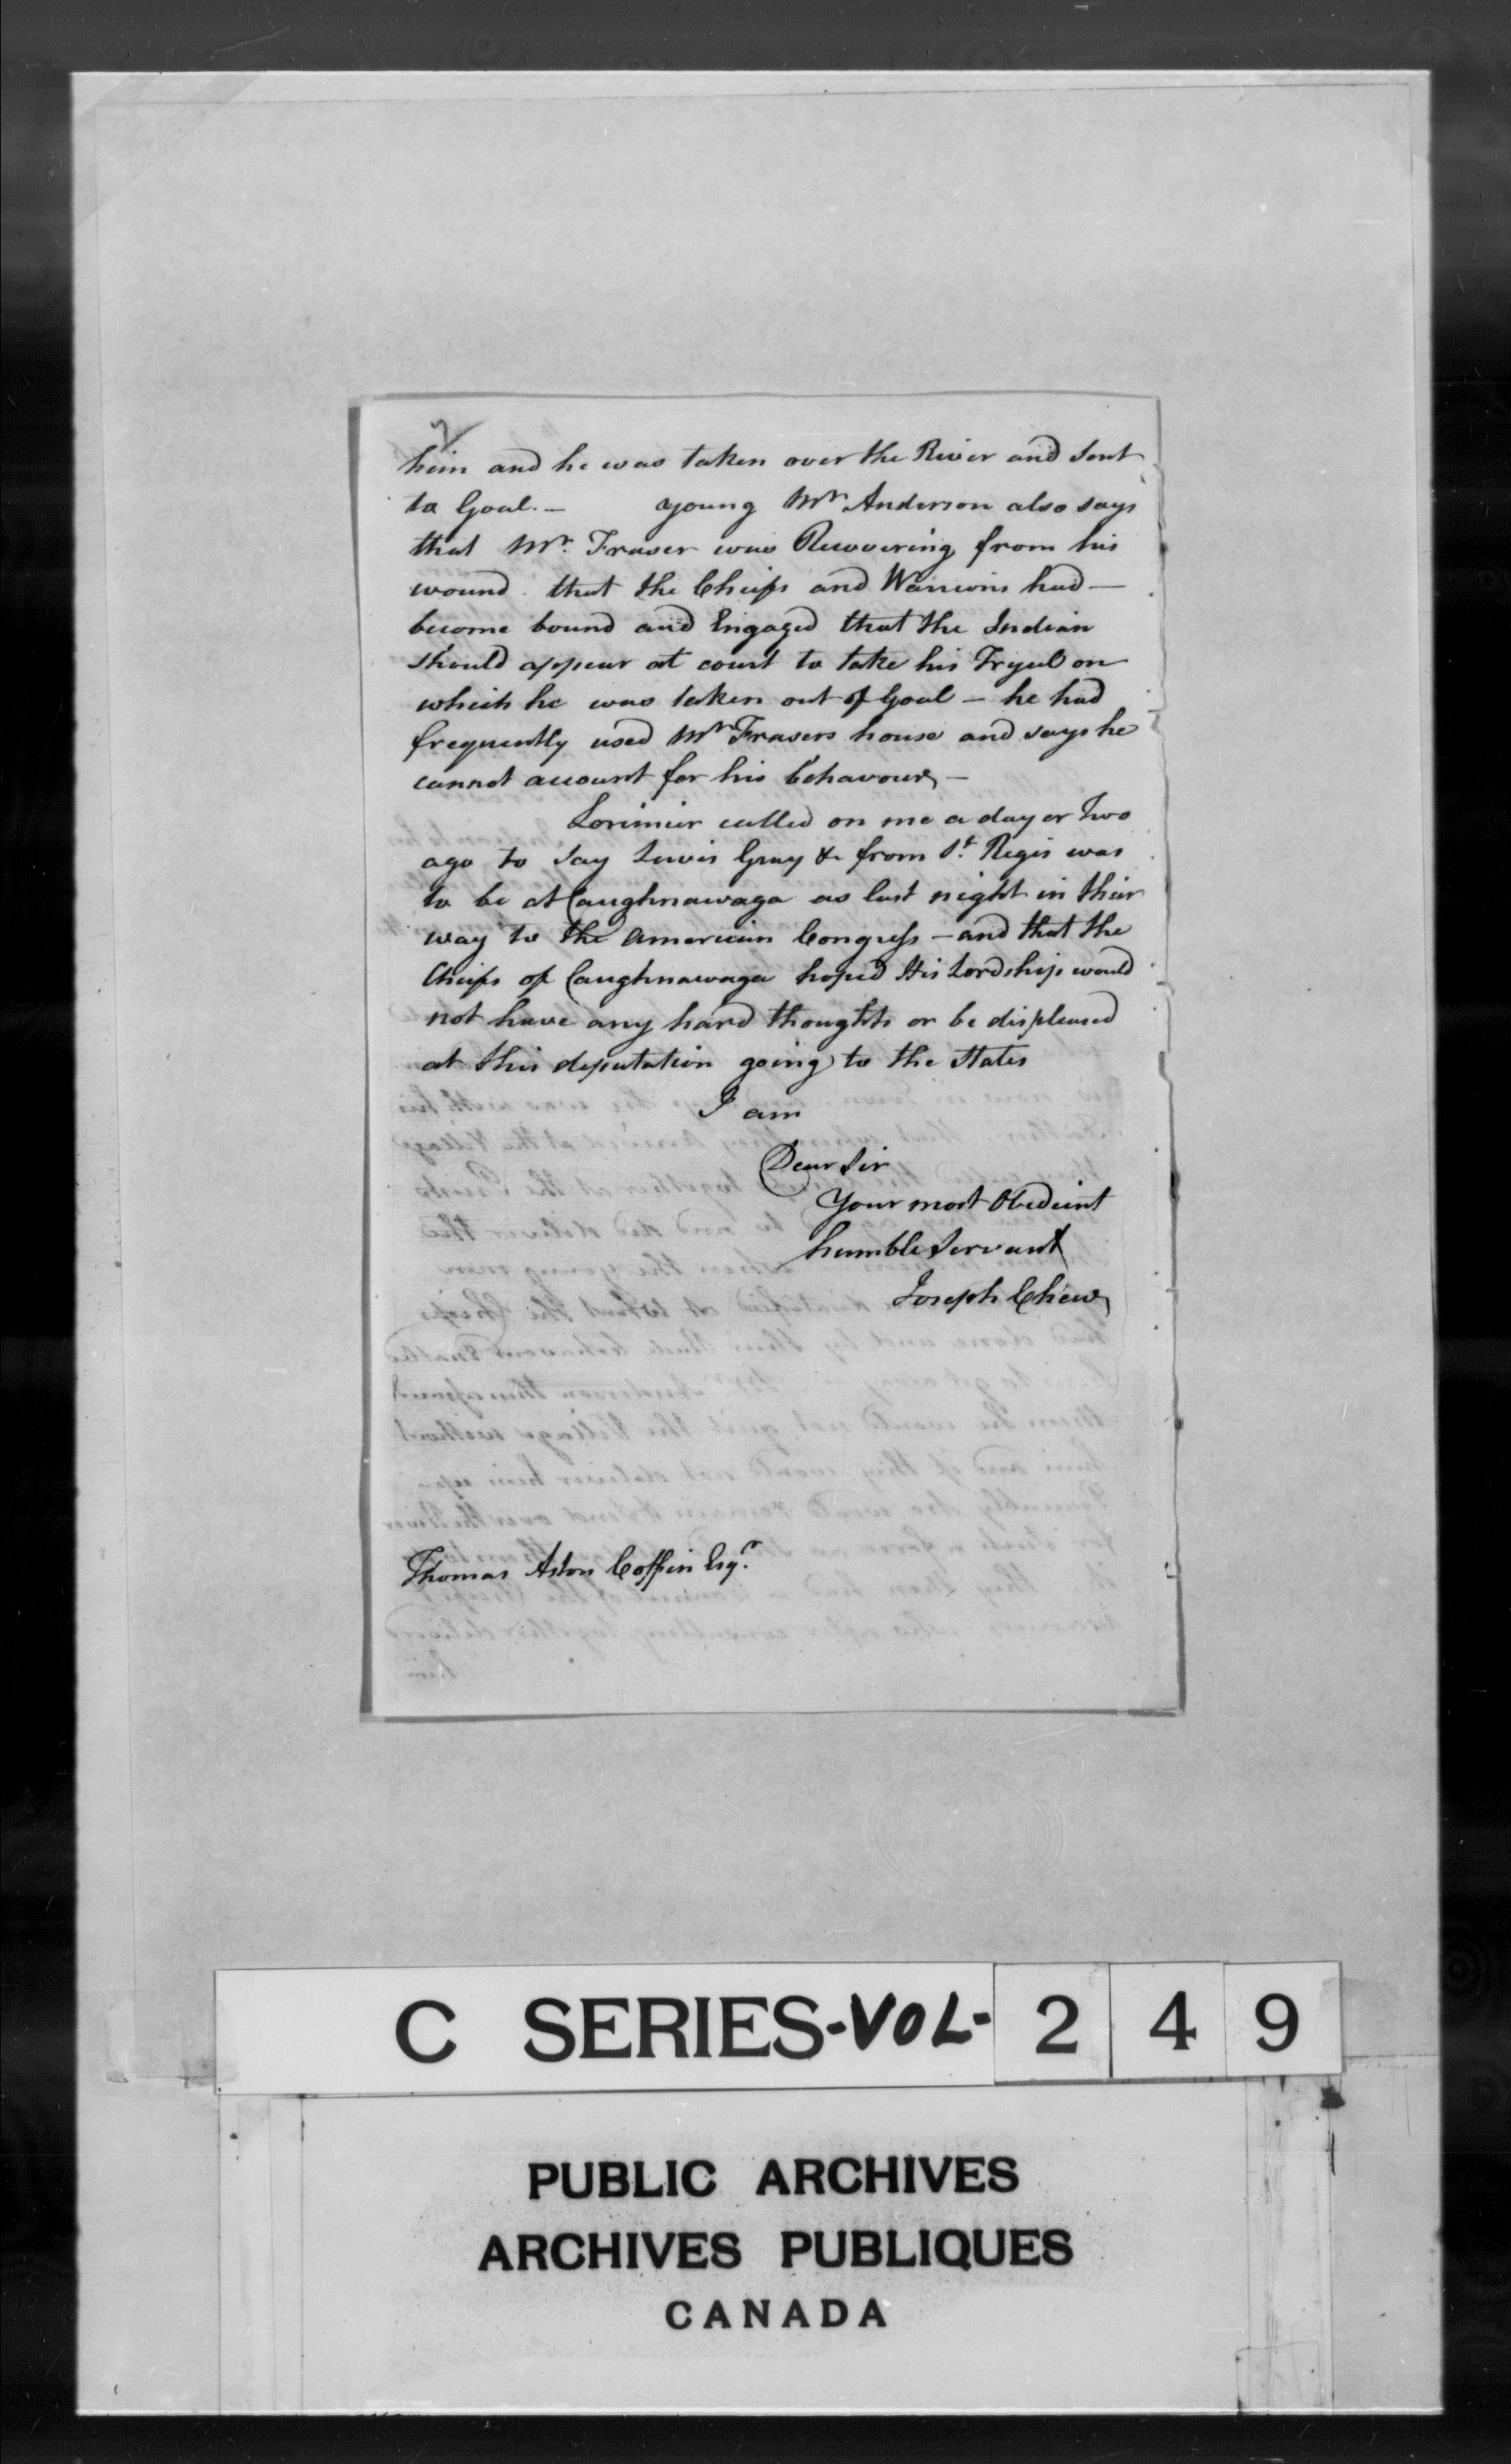 him and he was taken over the River and Sent
to Goal. — Young Mr. Anderson also says
that Mr. Fraser was Recovering from his
wound. that the Cheifs and Warriors had —
become bound and Engaged that the Indian
should appear at court to take his Tryal on
which he was taken out of Goal — he had
frequently used Mr Frasers house and says he
cannot account for his behavour, —
Lorimier called on me a day or Two
ago to Say Lewis Gray & from St. Regis was
to be at Caughnawaga as last night in their
way to the American Congress — and that the
Cheifs of Caughnawaga hoped His Lordship would
not have any hard thoughts or be displeased
at this deputation going to the States
I am
Dear Sir
Your most Obedient
humble Servant
Joseph Chew
Thomas Aston Coffin Esqr.
C SERIES-VOL-249
PUBLIC ARCHIVES
ARCHIVES PUBLIQUES
CANADA